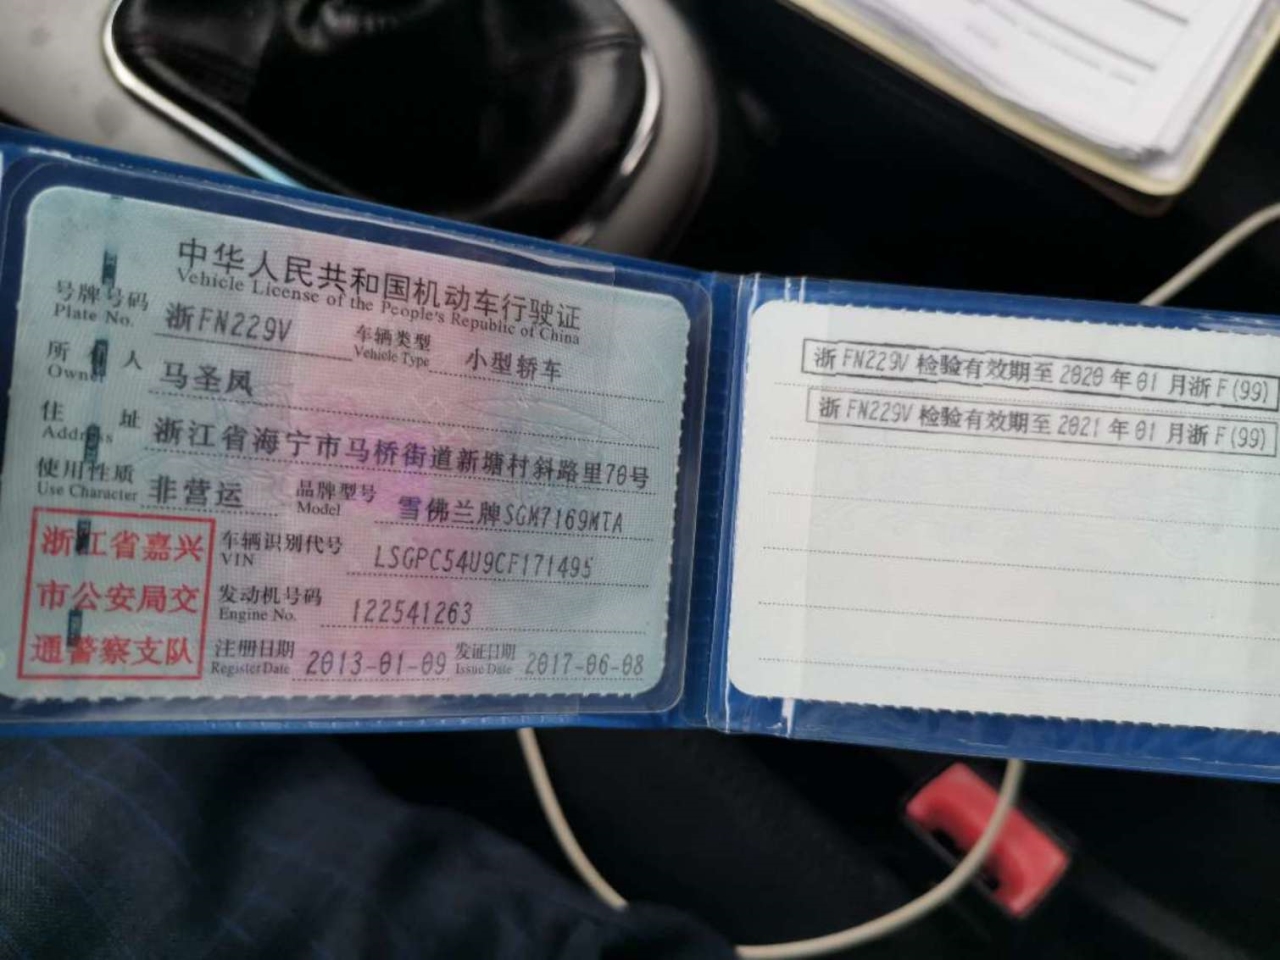 中华人民共和国机动车行驶证
Vehicle License of the People's Republic of China
号牌号码 浙FN229V 车辆类型 小型轿车
Plate No. Vehicle Type
所有人 马圣凤
Owner
住址 浙江省海宁市马桥街道新塘村斜路里70号
Address
使用性质 非营运 品牌型号 雪佛兰牌SGM7169MTA
Use Character Model
浙江省嘉兴
市公安局交
通警察支队
车辆识别代号 LSGPC54U9CF171495
VIN
发动机号码 122541263
Engine No.
注册日期 2013-01-09 发证日期 2017-06-08
Register Date Issue Date
浙FN229V检验有效期至2020年01月浙F(99)
浙FN229V检验有效期至2021年01月浙F(99)